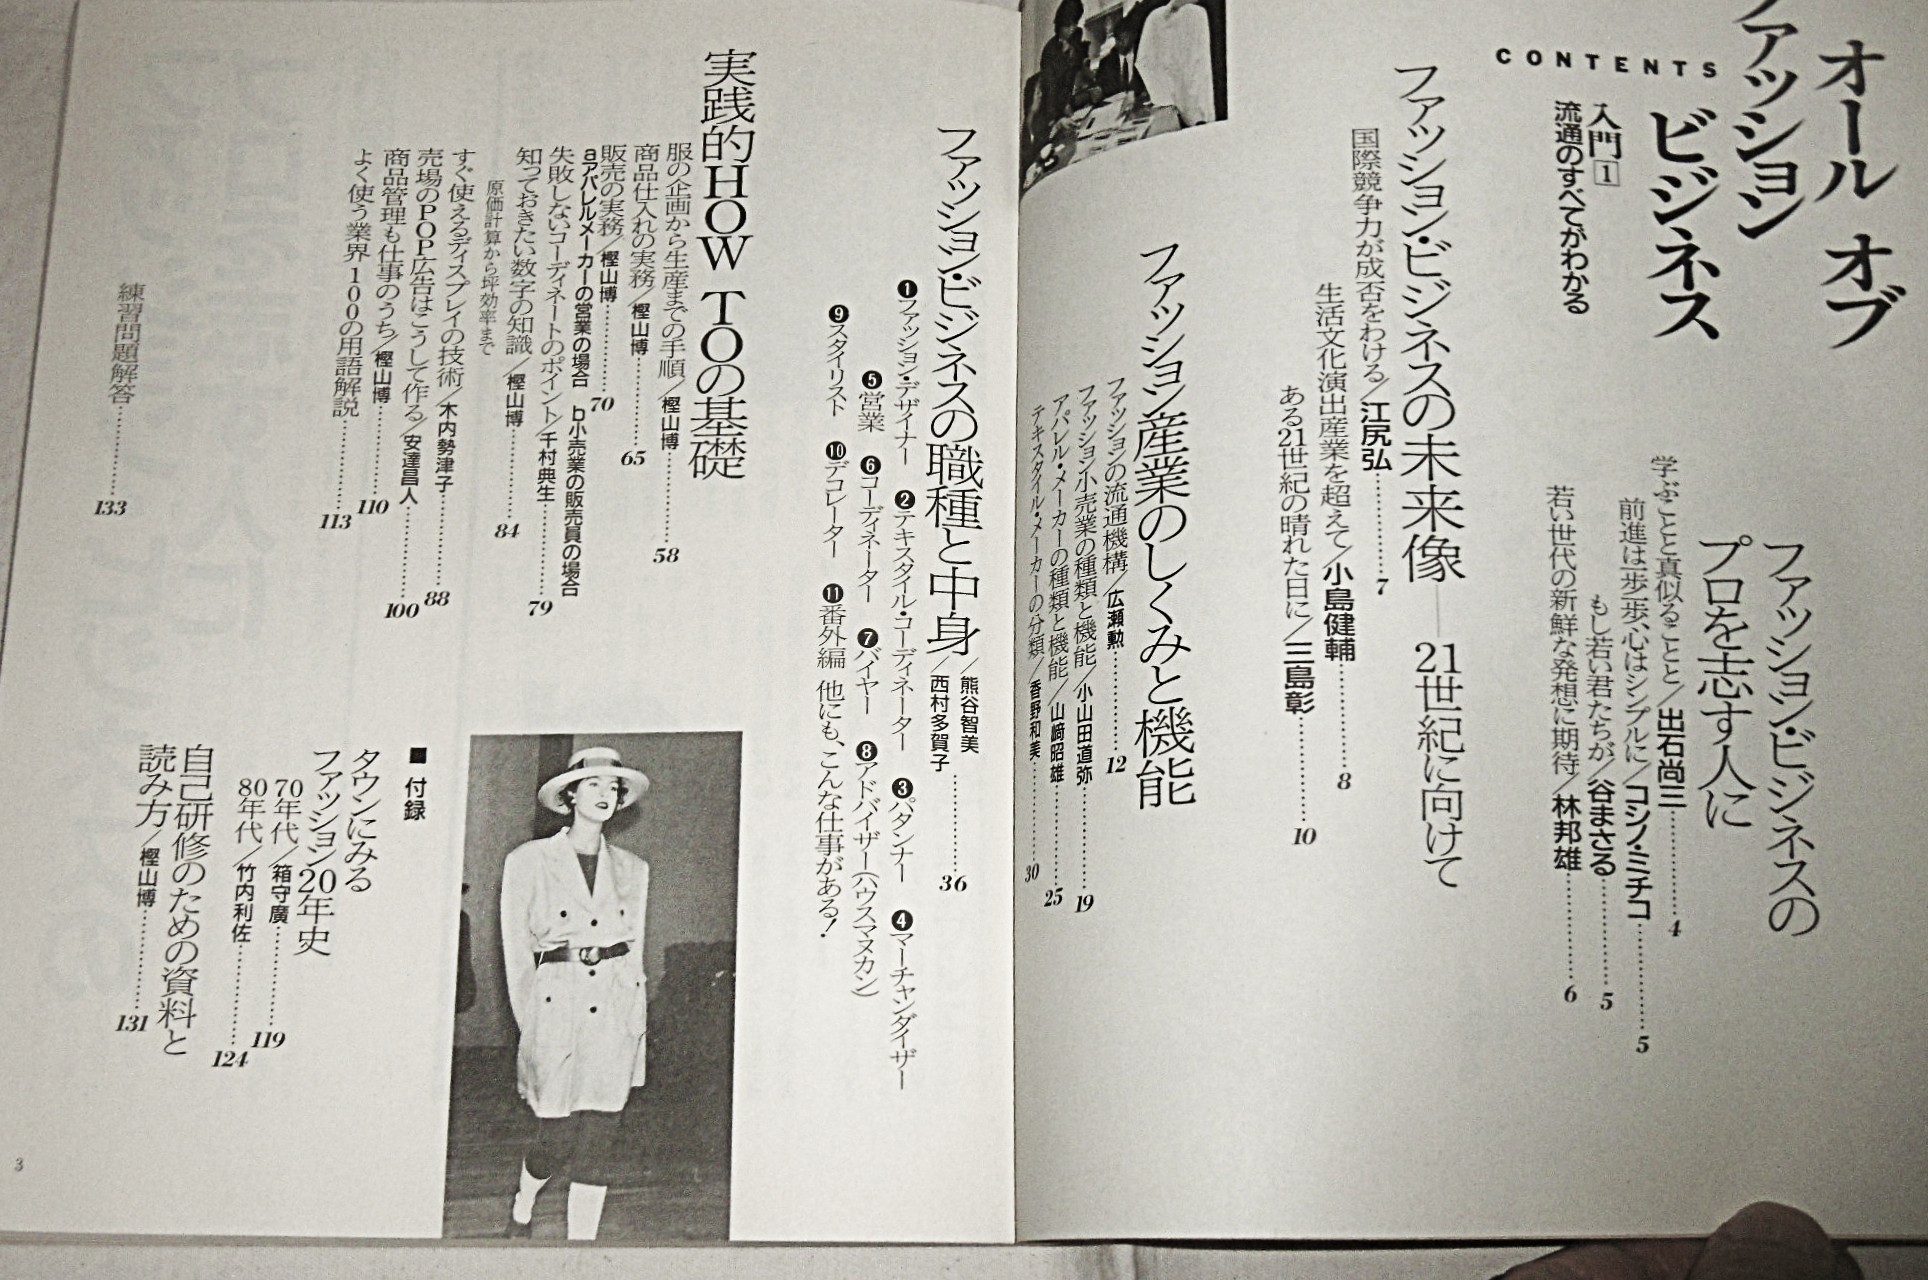 オール オブ
ファッション
ビジネス
CONTENTS
入門1
流通のすべてがわかる
ファッション・ビジネスの
プロを志す人に
学ぶことと真似ることと/出石尚三………4
前進は一歩一歩、心はシンプルに/コシノ・ミチコ………5
もし若い君たちが/谷まさる………5
若い世代の新鮮な発想に期待/林邦雄………6
ファッション・ビジネスの未来像──21世紀に向けて
国際競争力が成否をわける/江尻弘………7
生活文化演出産業を超えて/小島健輔………8
ある21世紀の晴れた日に/三島彰………10
ファッション産業のしくみと機能
ファッションの流通機構/広瀬勲………12
ファッション小売業の種類と機能/小山田道弥………19
アパレル・メーカーの種類と機能/山崎昭雄………25
テキスタイル・メーカーの分類/香野和美………30
ファッション・ビジネスの職種と中身/熊谷智美/西村多賀子………36
❶ファッション・デザイナー ❷テキスタイル・コーディネーター ❸パタンナー ❹マーチャンダイザー
❺営業 ❻コーディネーター ❼バイヤー ❽アドバイザー(ハウスマヌカン)
❾スタイリスト ❿デコレーター ⓫番外編 他にも、こんな仕事がある!
実践的HOW TOの基礎
服の企画から生産までの手順/樫山博………58
商品仕入れの実務/樫山博………65
販売の実務/樫山博………70
aアパレルメーカーの営業の場合 b小売業の販売員の場合
失敗しないコーディネートのポイント/千村典生………79
知っておきたい数字の知識/樫山博………84
原価計算から坪効率まで
すぐ使えるディスプレイの技術/木内勢津子………88
売場のPOP広告はこうして作る/安達昌人………100
商品管理も仕事のうち/樫山博………110
よく使う業界100の用語解説………113
練習問題解答………133
■付録
タウンにみる
ファッション20年史
70年代/箱守廣………119
80年代/竹内利佐………124
自己研修のための資料と
読み方/樫山博………131
3